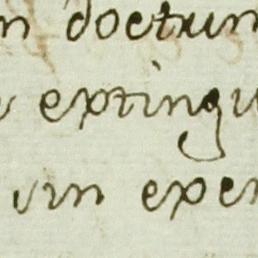 n doctum
extingu
vin exer